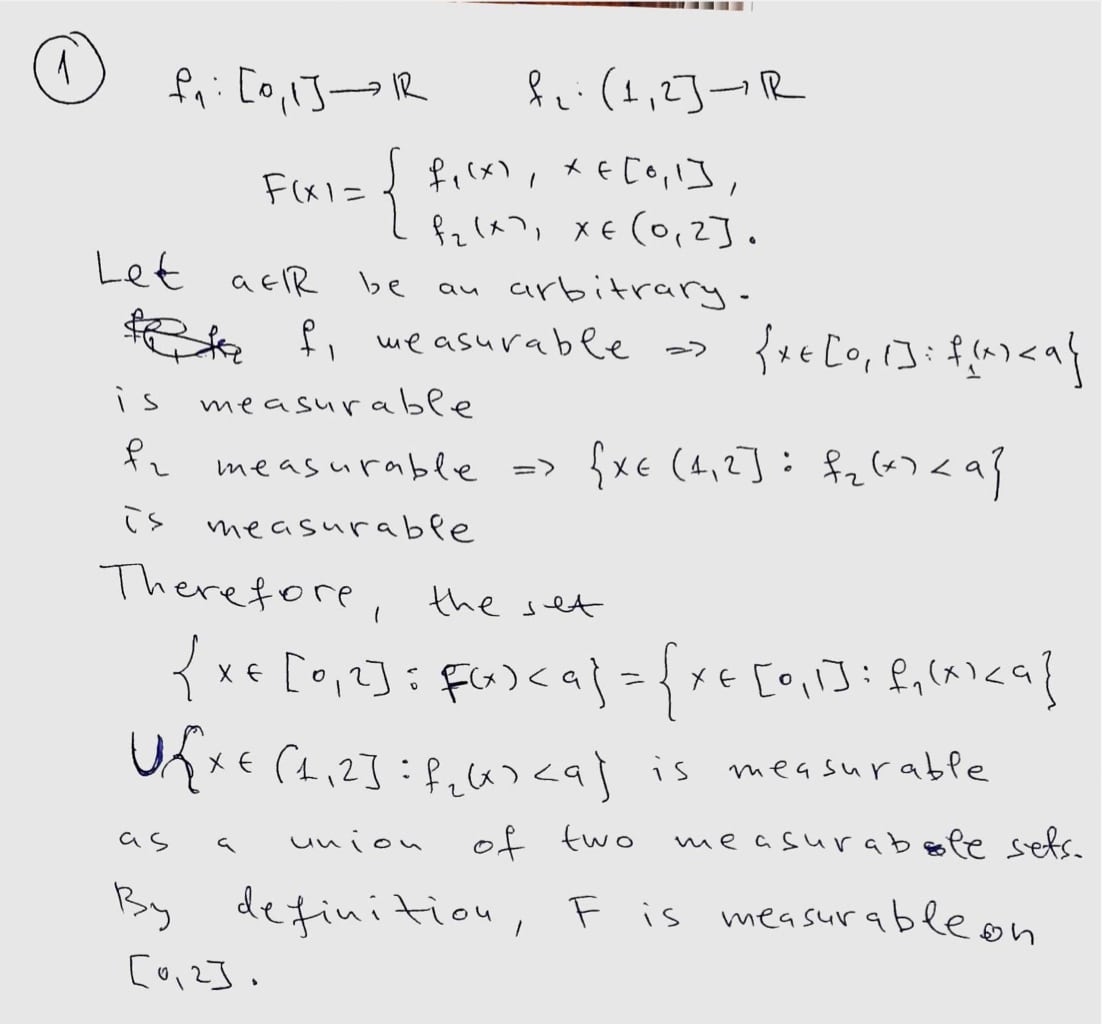 1
f₁: [0,1] → ℝ f₂: (1,2] → ℝ
F(x) = { f₁(x), x ∈ [0,1],
f₂(x), x ∈ (0,2].
Let a∈ℝ be an arbitrary.
f₁ measurable => {x ∈ [0,1]: f₁(x) < a}
is measurable
f₂ measurable => {x ∈ (1,2] : f₂(x) < a}
is measurable
Therefore, the set
{x ∈ [0,2] : F(x) < a} = {x ∈ [0,1] : f₁(x) < a}
∪{x ∈ (1,2] : f₂(x) < a} is measurable
as a union of two measurable sets.
By definition, F is measurable on
[0,2].